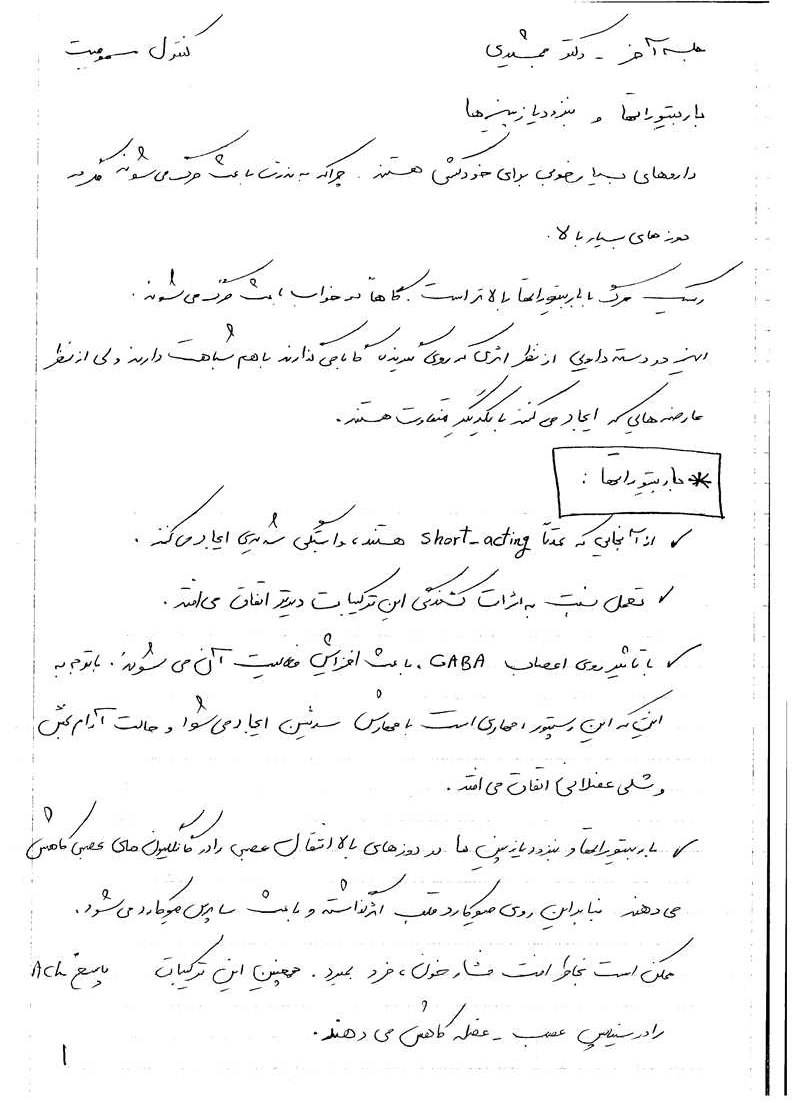 جلسه آخر - دکتر جمشیدی
کنترل مسمومیت
باربیتوراتها و بنزودیازپین‌ها
داروهای بسیار خوبی برای خودکشی هستند. چراکه به ندرت باعث مرگ می‌شوند مگر در
دوزهای بسیار بالا.
ریسک مرگ با باربیتوراتها بالاتر است. گاهاً در خواب باعث مرگ می‌شوند.
این دو دسته دارویی از نظر اثری که روی گیرنده گابا می‌گذارند باهم شباهت دارند ولی از نظر
عارضه‌هایی که ایجاد می‌کنند با یکدیگر متفاوت هستند.
* باربیتوراتها :
✓ از آنجایی که عمدتاً short-acting هستند، وابستگی شدیدی ایجاد می‌کند.
✓ تحمل نسبت به اثرات کشندگی این ترکیبات دیرتر اتفاق می‌افتد.
✓ با تاثیر روی اعصاب GABA، باعث افزایش فعالیت آن می‌شوند. باتوجه به
اینکه این رسپتور مهاری است با مهارش سدیشن ایجاد می‌شود و حالت آرام بخش
و شلی عضلانی اتفاق می‌افتد.
✓ باربیتوراتها و بنزودیازپین ها در دوزهای بالا انتقال عصبی را در گانگلیون های عصبی کاهش
می‌دهند بنابراین روی میوکارد قلب اثر گذاشته و باعث ساپرس میوکارد می‌شود.
ممکن است بخاطر افت فشار خون، فرد بمیرد. همچنین این ترکیبات پاسخ Ach
را در سیناپس عصب - عضله کاهش می دهند.
۱